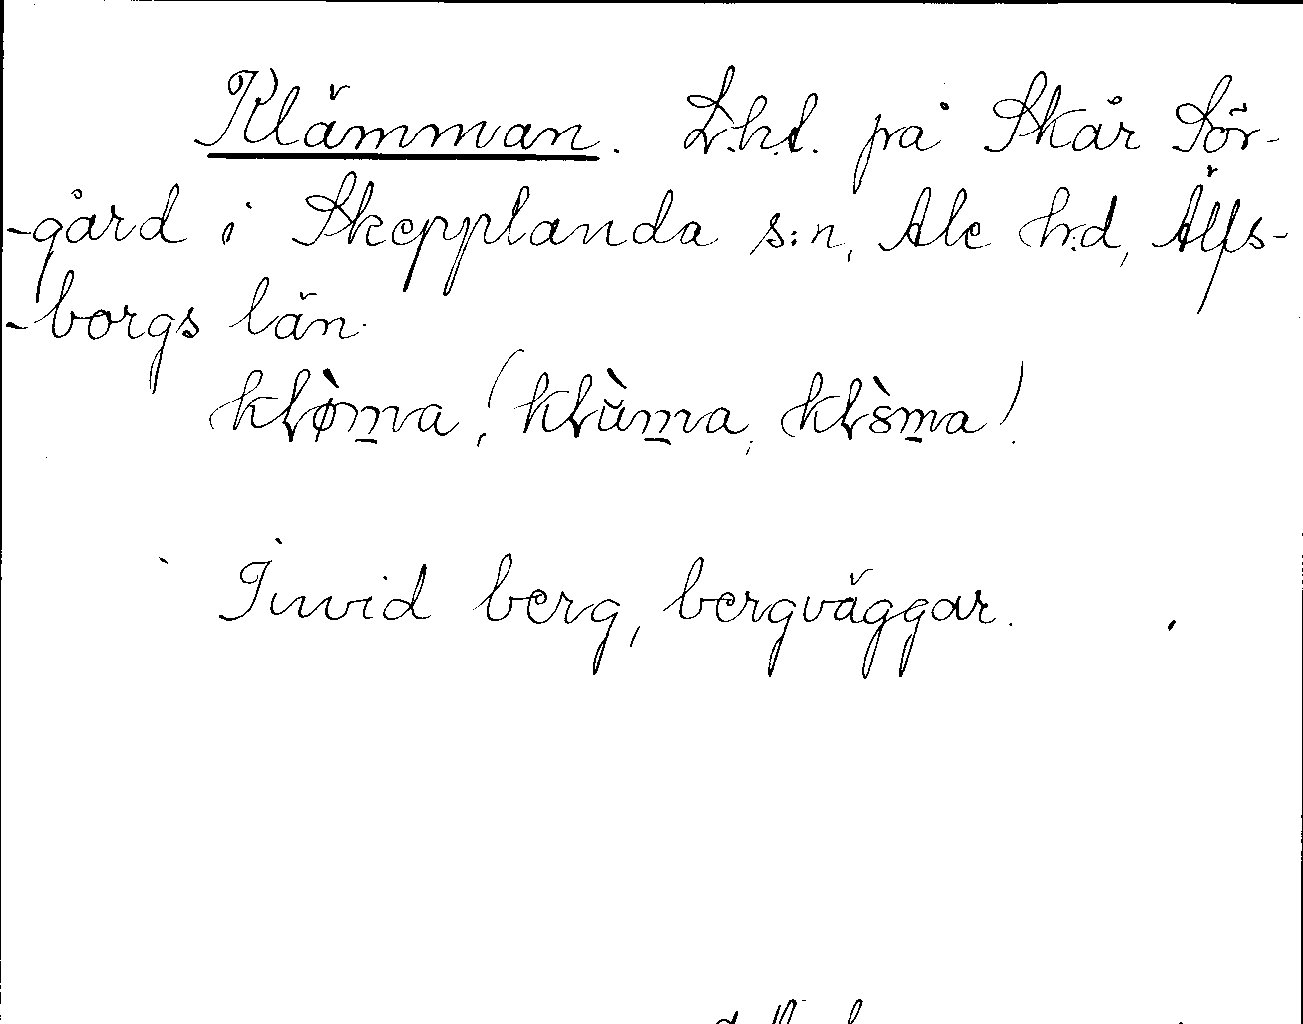 Klämman. L.h.t. på Skår Sör-
-gård i Skepplanda s:n, Ale h:d, Älfs-
-borgs län.
klø̀m̲a, (klùm̲a, kls̀m̲a).
Invid berg, bergväggar.